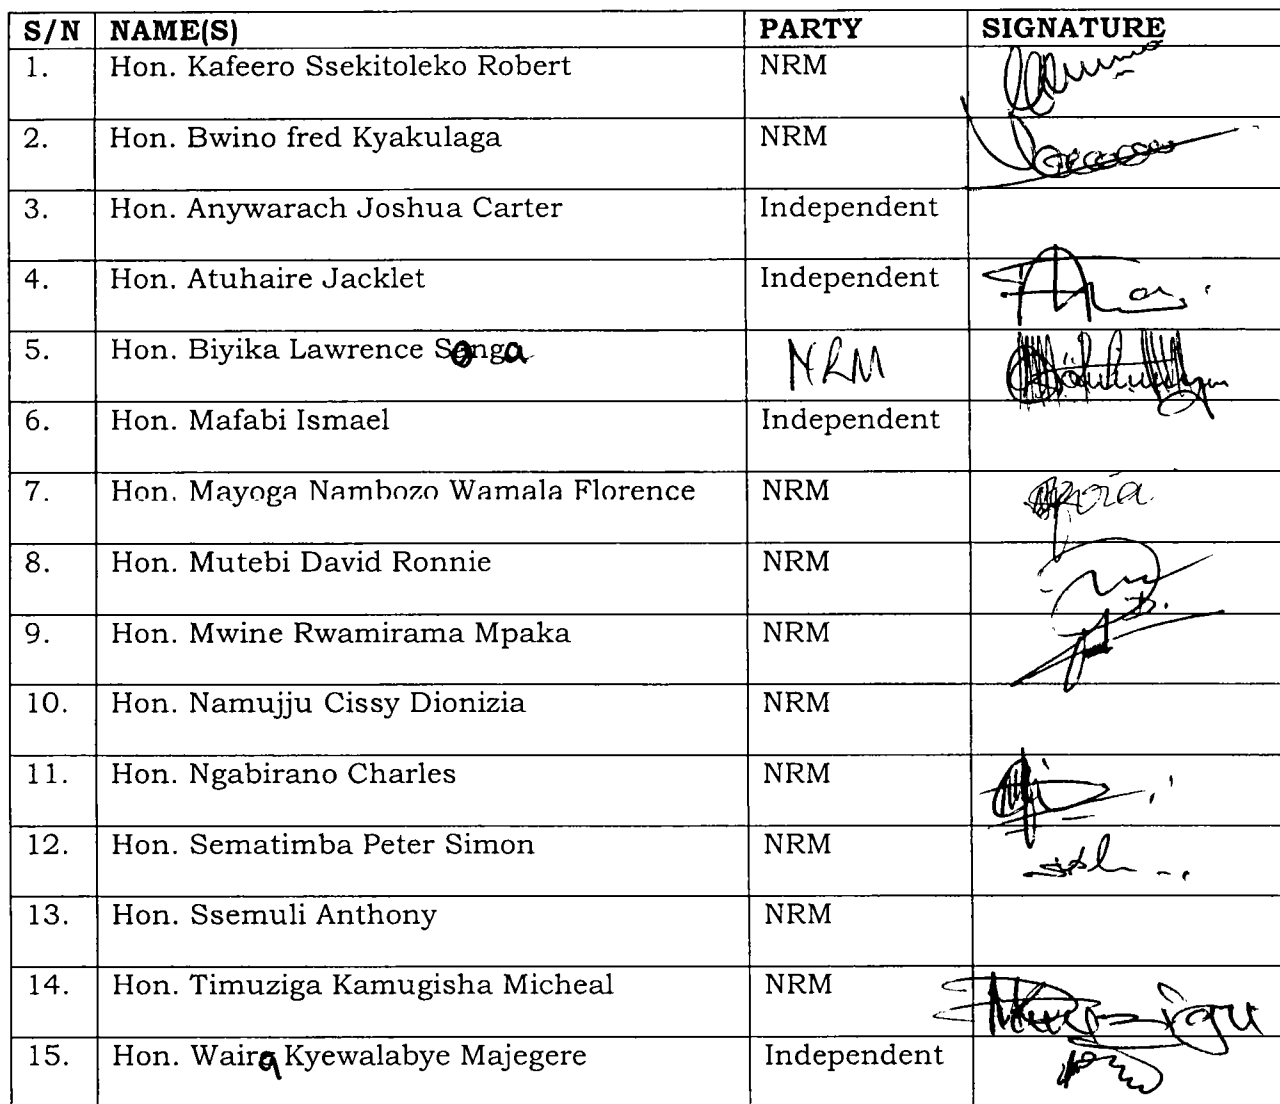 S/N NAME(S) PARTY SIGNATURE
1. Hon. Kafeero Ssekitoleko Robert NRM
2. Hon. Bwino fred Kyakulaga NRM
3. Hon. Anywarach Joshua Carter Independent
4. Hon. Atuhaire Jacklet Independent
5. Hon. Biyika Lawrence Songa NRM
6. Hon. Mafabi Ismael Independent
7. Hon. Mayoga Nambozo Wamala Florence NRM
8. Hon. Mutebi David Ronnie NRM
9. Hon. Mwine Rwamirama Mpaka NRM
10. Hon. Namujju Cissy Dionizia NRM
11. Hon. Ngabirano Charles NRM
12. Hon. Sematimba Peter Simon NRM
13. Hon. Ssemuli Anthony NRM
14. Hon. Timuziga Kamugisha Micheal NRM
15. Hon. Waira Kyewalabye Majegere Independent